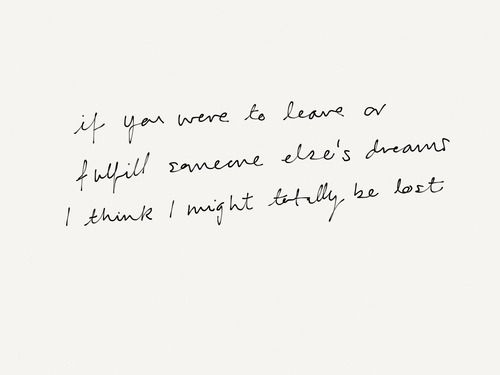 if you were to leave or
fulfill someone else's dreams
I think I might totally be lost